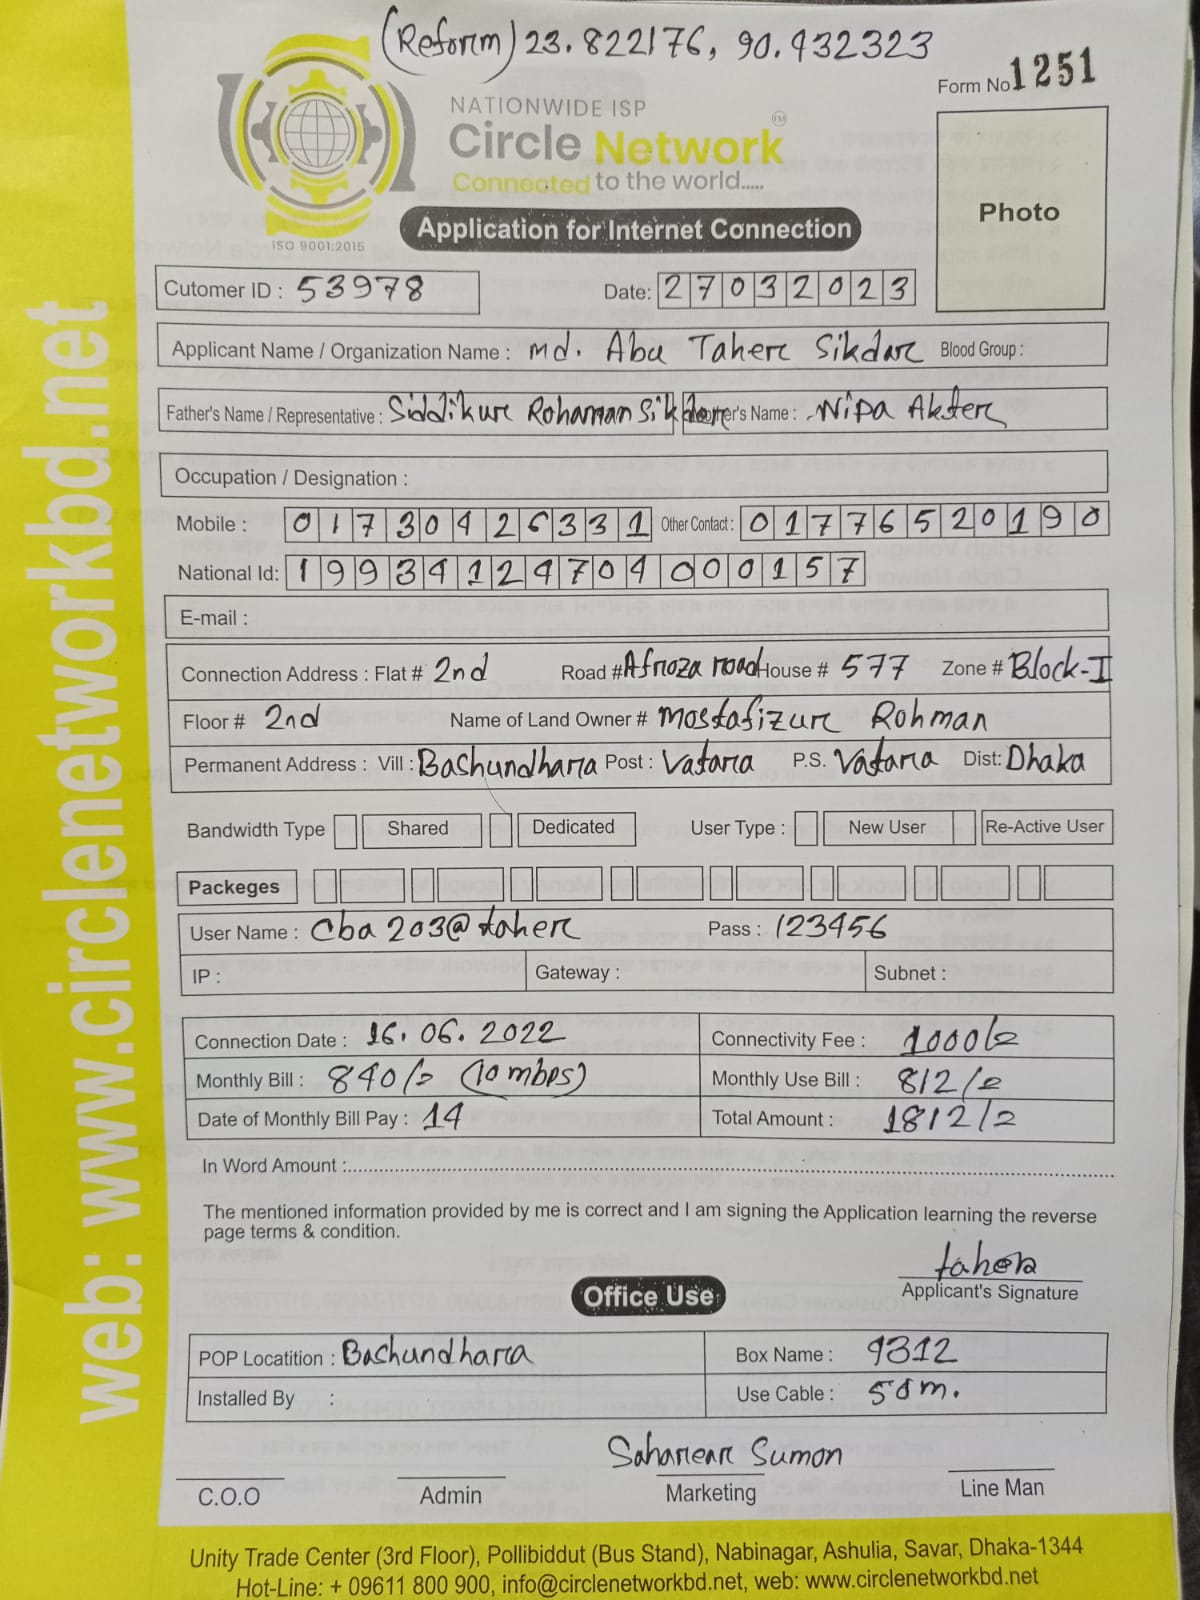 (Reform) 23.822176, 90.432323
Form No 1251
NATIONWIDE ISP
Circle Network TM
Connected to the world.....
ISO 9001:2015
Application for Internet Connection
Photo
Cutomer ID : 53978 Date: 27032023
Applicant Name / Organization Name : Md. Abu Taher Sikdar Blood Group :
Father's Name / Representative : Siddikur Rohaman Sikder Mother's Name : Nipa Akter
Occupation / Designation :
Mobile : 01730426331 Other Contact : 01776520190
National Id: 19934124704000157
E-mail :
Connection Address : Flat # 2nd Road # Afroza road House # 577 Zone # Block-I
Floor # 2nd Name of Land Owner # Mostafizur Rohman
Permanent Address : Vill : Bashundhara Post : Vatara P.S. Vatara Dist: Dhaka
Bandwidth Type Shared Dedicated User Type : New User Re-Active User
Packeges
User Name : Cba203@taher Pass : 123456
IP : Gateway : Subnet :
Connection Date : 16.06.2022 Connectivity Fee : 1000/=
Monthly Bill : 840/= (10 mbps) Monthly Use Bill : 812/=
Date of Monthly Bill Pay : 14 Total Amount : 1812/=
In Word Amount :
The mentioned information provided by me is correct and I am signing the Application learning the reverse
page terms & condition.
taher
Applicant's Signature
Office Use
POP Locatition : Bashundhara Box Name : 9312
Installed By : Use Cable : 50m.
Saharear Sumon
C.O.O Admin Marketing Line Man
Unity Trade Center (3rd Floor), Pollibiddut (Bus Stand), Nabinagar, Ashulia, Savar, Dhaka-1344
Hot-Line: + 09611 800 900, info@circlenetworkbd.net, web: www.circlenetworkbd.net
web: www.circlenetworkbd.net